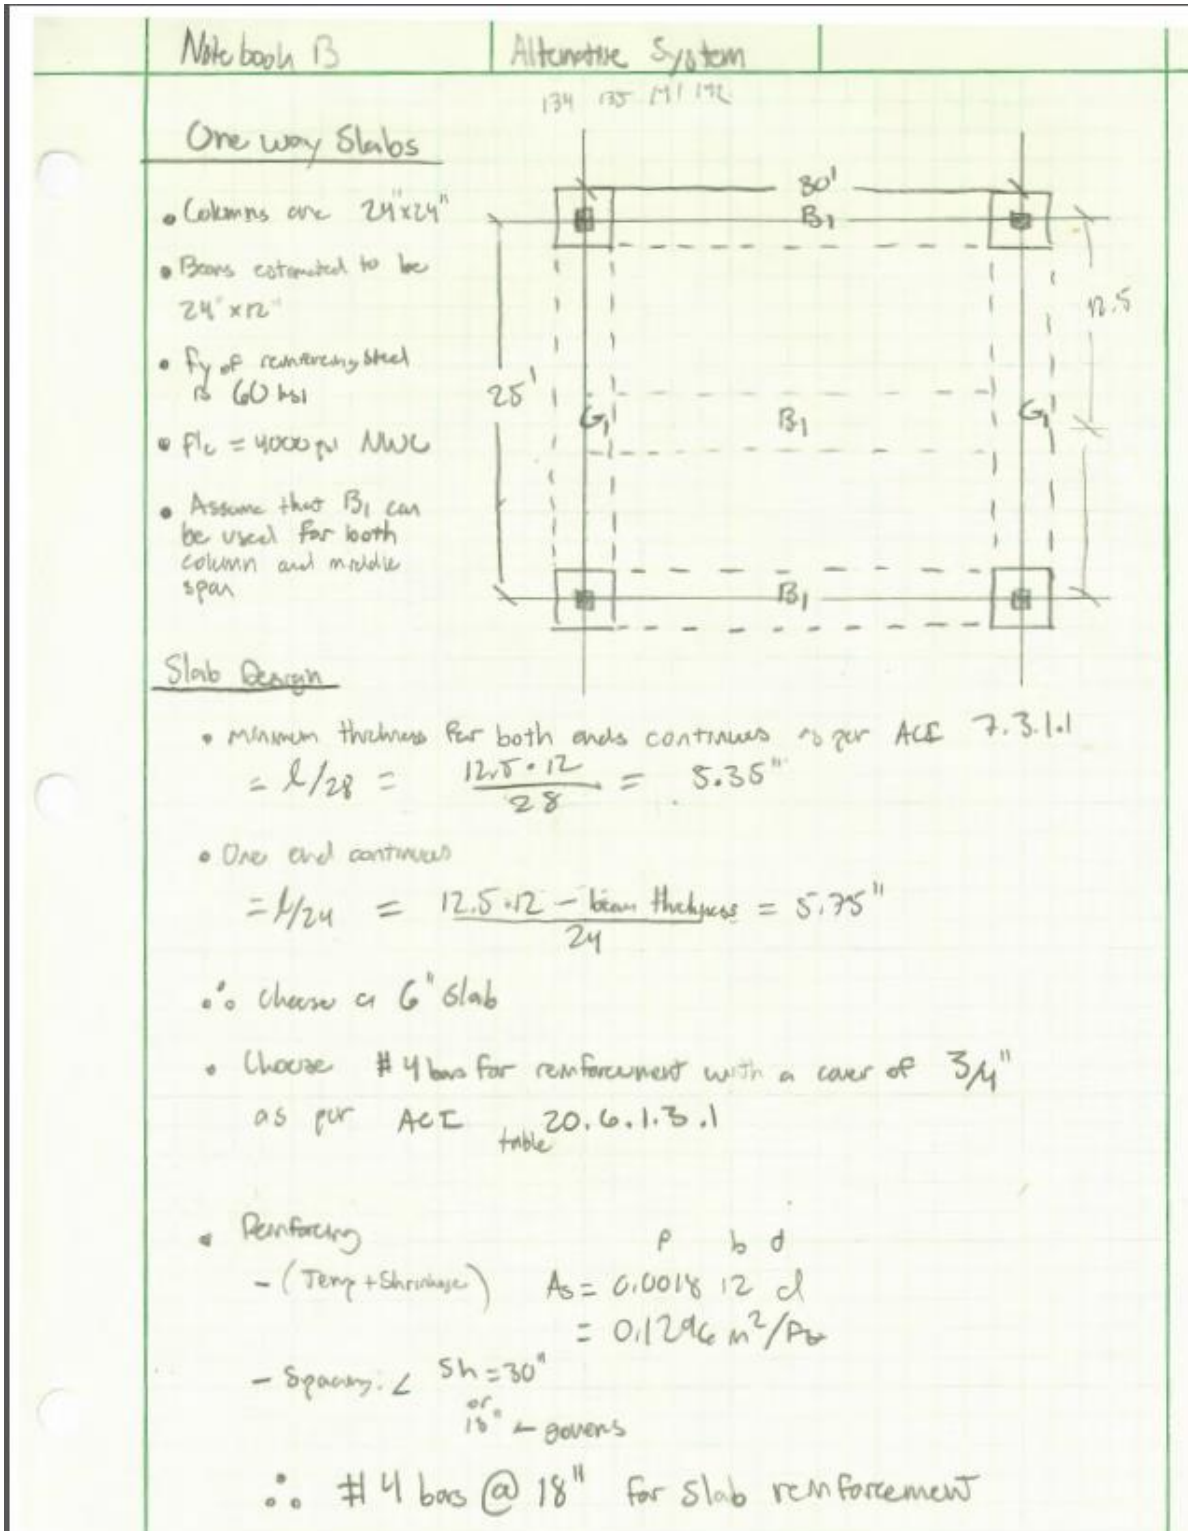 Notebook B
Alternative System
134 135 141 142
One way Slabs
• Columns are 24"x24"
• Beams estimated to be
24" x12"
• fy of reinforcing steel
is 60 ksi
• f'c = 4000 psi NWC
• Assume that B1 can
be used for both
column and middle
span
30'
B1
12.5
25'
G1
B1
G1
B1
Slab Design
• minimum thickness for both ends continues as per ACI 7.3.1.1
= l/28 = 12.5 • 12 / 28 = 5.35"
• One end continues
= l/24 = 12.5 • 12 - beam thickness / 24 = 5.75"
∴ Choose a 6" Slab
• Choose #4 bars for reinforcement with a cover of 3/4"
as per ACI table 20.6.1.3.1
• Reinforcing
ρ b d
- (Temp + Shrinkage) As = 0.0018 12 d
= 0.1296 in²/ft
- Spacing: < 5h = 30"
or
18" ← governs
∴ #4 bars @ 18" for slab reinforcement